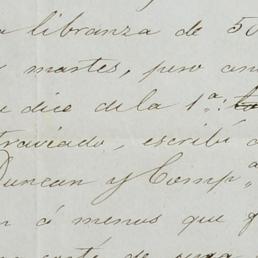 libranza de 50
martes, pero an
dice de la 1ª:
traviado, escribí
Duncan y Compª
ó menos que